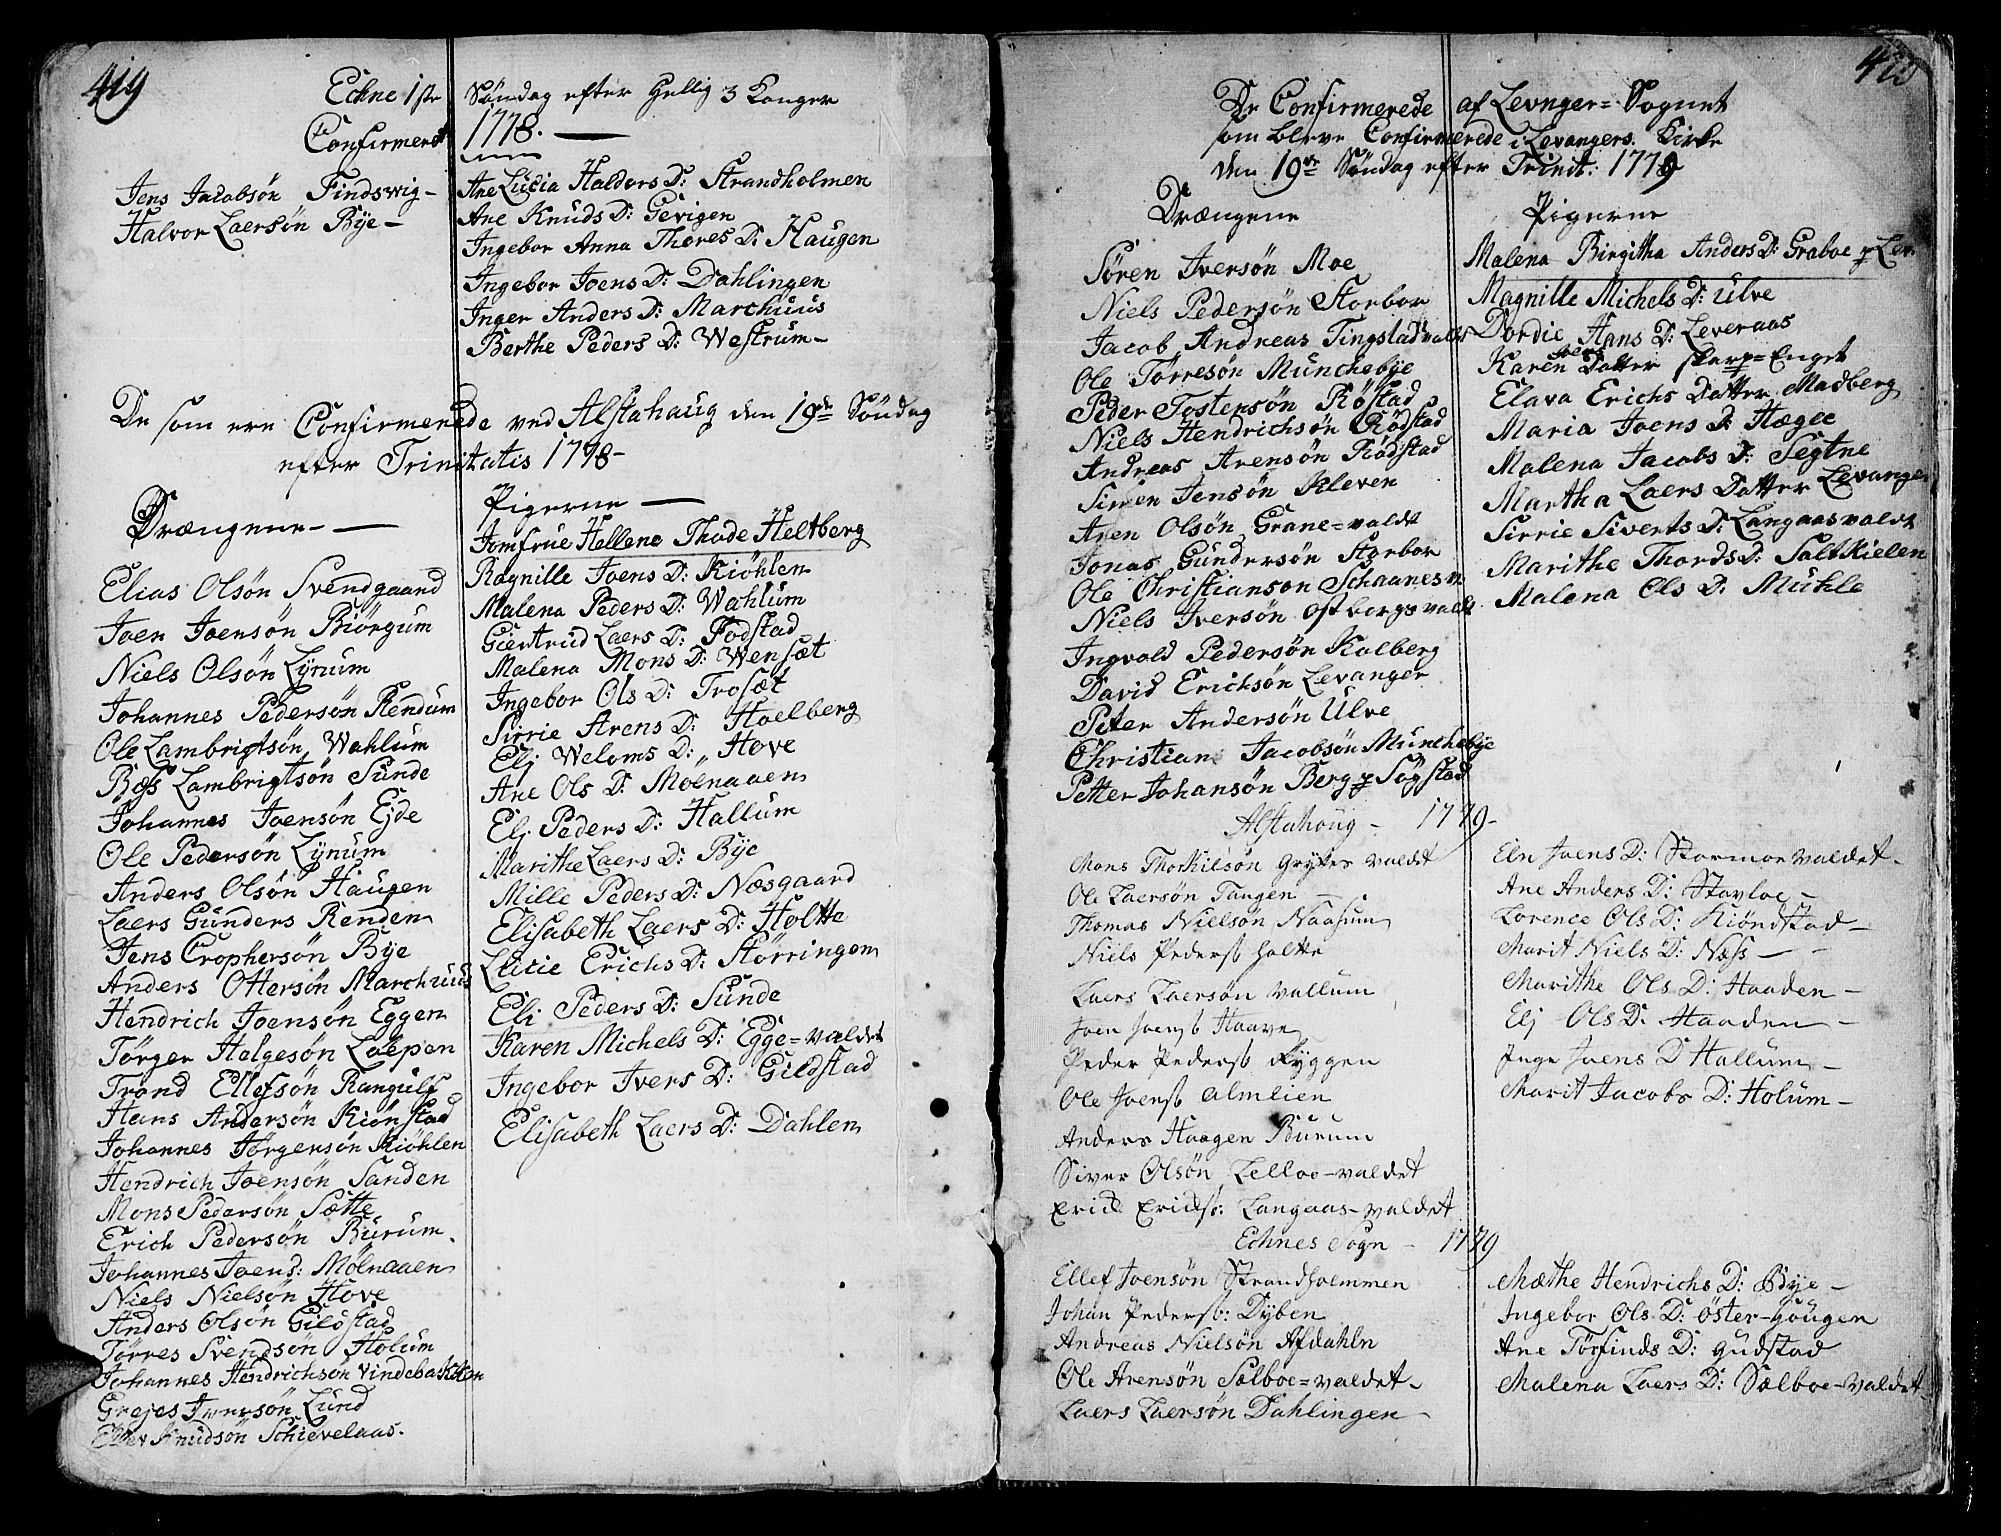 419
Echne 1ste Søndag efter Hellig 3 Konger
Confirmert 1778.
Jens Jacobsön Findswig
Halvor Laersön Bye
Ane Lucia Halders D: Strandholmen
Ane Knuds D: Gevigen
Ingebor Anna Thores D: Haugen
Ingebor Joens D: Dahlingen
Inger Anders D: Marchuus
Berthe Peders D: Westrum
De som ere Confirmerede ved Alstahaug den 19de Söndag
efter Trinitatis 1778
Drængene
Elias Olsön Svendgaard
Joen Joensön Biörgum
Niels Olsön Lynum
Johannes Pedersön Rendum
Ole Lambrigtsön Wahlum
Lambrigtsön Sunde
Johannes Joensön Ejde
Ole Pedersön Lynum
Anders Olsön Haugen
Laers Gunders Renden
Jens Crophersön Bye
Anders Ottersön Marchuus
Hendrich Joensön Eggen
Törger Helgesön Loepen
Trond Ellefsön Rangulf
Hans Andersön Kiönstad
Johannes Jörgensön Kiöhlen
Hendrich Joensön Sanden
Mons Pedersön Sætte
Erich Pedersön Burum.
Johannes Joens: Mölnaaen
Niels Nielsön Hove
Anders Olsön Gilöstad
Törres Svendsön Holum
Johannes Hendrichsön Vindebakken
Grejes Iversön Lund
Knudsön Schievelaas.
Pigerne
Jomfrue Hellene Thode Heltberg
Ragnille Joens D: Kiöhlen
Malena Peders D: Wahlum
Giertrud Laers D: Fodstad
Malena Mons D: Wensæt
Ingebor Ols D: Trosæt
Sirrie Arens D: Hoelberg
Elj Weloms D: Hove
Ane Ols D: Mölnaaen
Elj Peders D: Hallum
Marithe Laers D: Bye
Mille Peders D: Næsgaard
Elisabeth Laers D: Holtte
Lucie Erichs D: Störringen
Eli Peders D: Sunde
Karen Michels D: Egge=valdet
Ingebor Ivers D: Gildstad
Elisabeth Laers D: Dahlen
De Confirmerede af Levnger=Sognet
som bleve Confirmerede i Levangers Kirke
den 19de Söndag efter Trinit: 1779
Drængene
Sören Iversön Moe
Niels Pedersön Storbor
Jacob Andreas Tingstadvald
Ole Törresön Munchebye
Peder Tostensön Röstad
Niels Hendrichsön Rödstad
Andreas Arensön Rödstad
Simen Jensön Kleven
Aren Olsön Grane=valdt
Jonas Gundersön Storbor
Ole Christianson Schaanes
Niels Iversön Ostborgs valdt
Ingvald Pedersön Kalberg
David Erichsön Levanger
Peter Andersön Ulve
Christian Jacobsön Munchebye
Petter Johansön Berg p Sögstad
Pigerne
Malena Birgitha Anders D: Graboe p Lev.
Magnille Michels D: Ulve
Dordie Hans D: Leveraas
Karen Joens Datter skarp=Enget
Elava Erichs Datter Madberg
Maria Joens D: Hægle
Malena Jacobs D: Segtne
Martha Laers Datter Levanger
Sirrie Siverts D: Langaas valdt
Marithe Thords D: Saltkielen
Malena Ols D: Muhle
Alstahoug 1779
Mons Thorkilsön Gryter valdet
Ole Laersön Tangen
Thomas Nielsön Naasum
Niels Peders: Holtte
Laers Laersön Vallum
Joen Joens: Haave
Peder Peders: Ryggen
Ole Joens: Almlien
Anders Haagen Burum
Siver Olsön Lelloe-valdet
Erich Erichs: Langaas-valdet
Eln Joens D: Stormoe valdet
Ane Anders D: Stavloe
Lorence Ols D: Kiöndstad
Marit Niels D: Næss
Marithe Ols D: Haaden
Elj Ols D: Haaden
Inge Joens D Hallum
Marit Jacobs D: Holum
Echnes Sogn 1779
Ellef Joensön Strandholmmen
Johan Peders: Dyben
Andreas Nielsön Afdahln
Ole Arensön Solboe=valdet
Laers Laersön Dahlingen
Mæthe Hendrichs D: Bye
Ingebor Ols D: Öster-Hougen
Ane Törfinds D: Gudstad
Malena Laers D: Sælboe-valdet